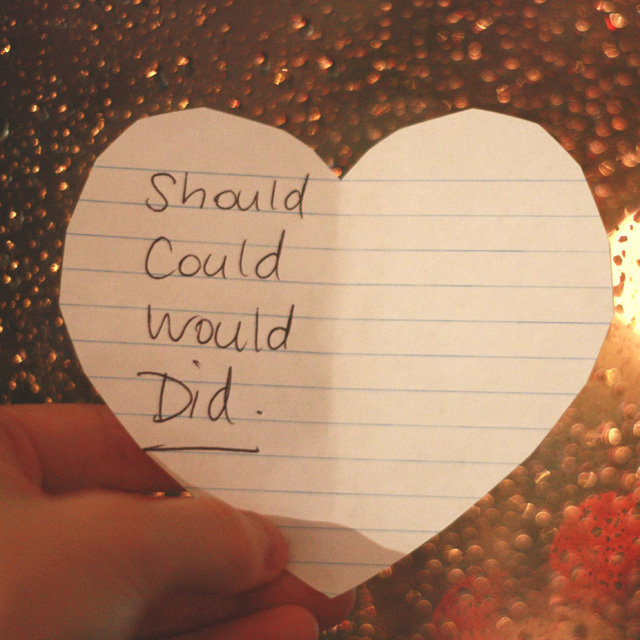 Should
Could
Would
Did.